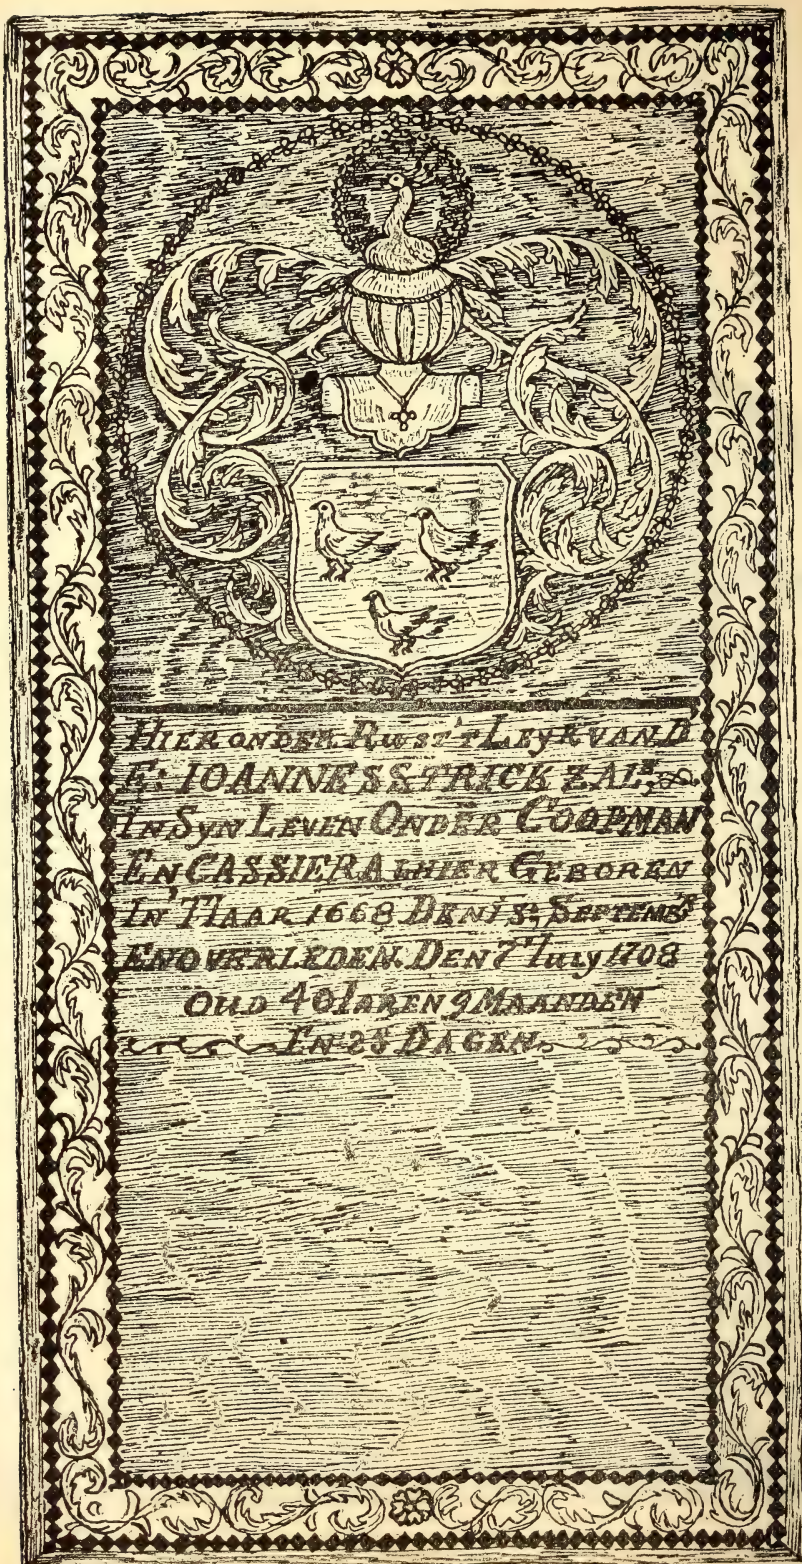 HIER ONDER RUST 'T LEYK VAN D'
E: IOANNES STRICK ZAL:
IN SYN LEVEN ONDER COOPMAN
EN CASSIER ALHIER GEBOREN
IN 'T IAAR 1668 DEN 13: SEPTEMBR
EN OVERLEDEN. DEN 7 IULY 1708
OUD 40 IAREN 9 MAANDEN
EN 25 DAGEN